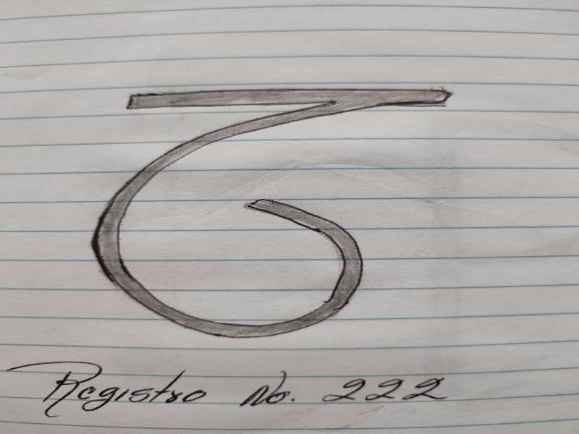 Registro No. 222